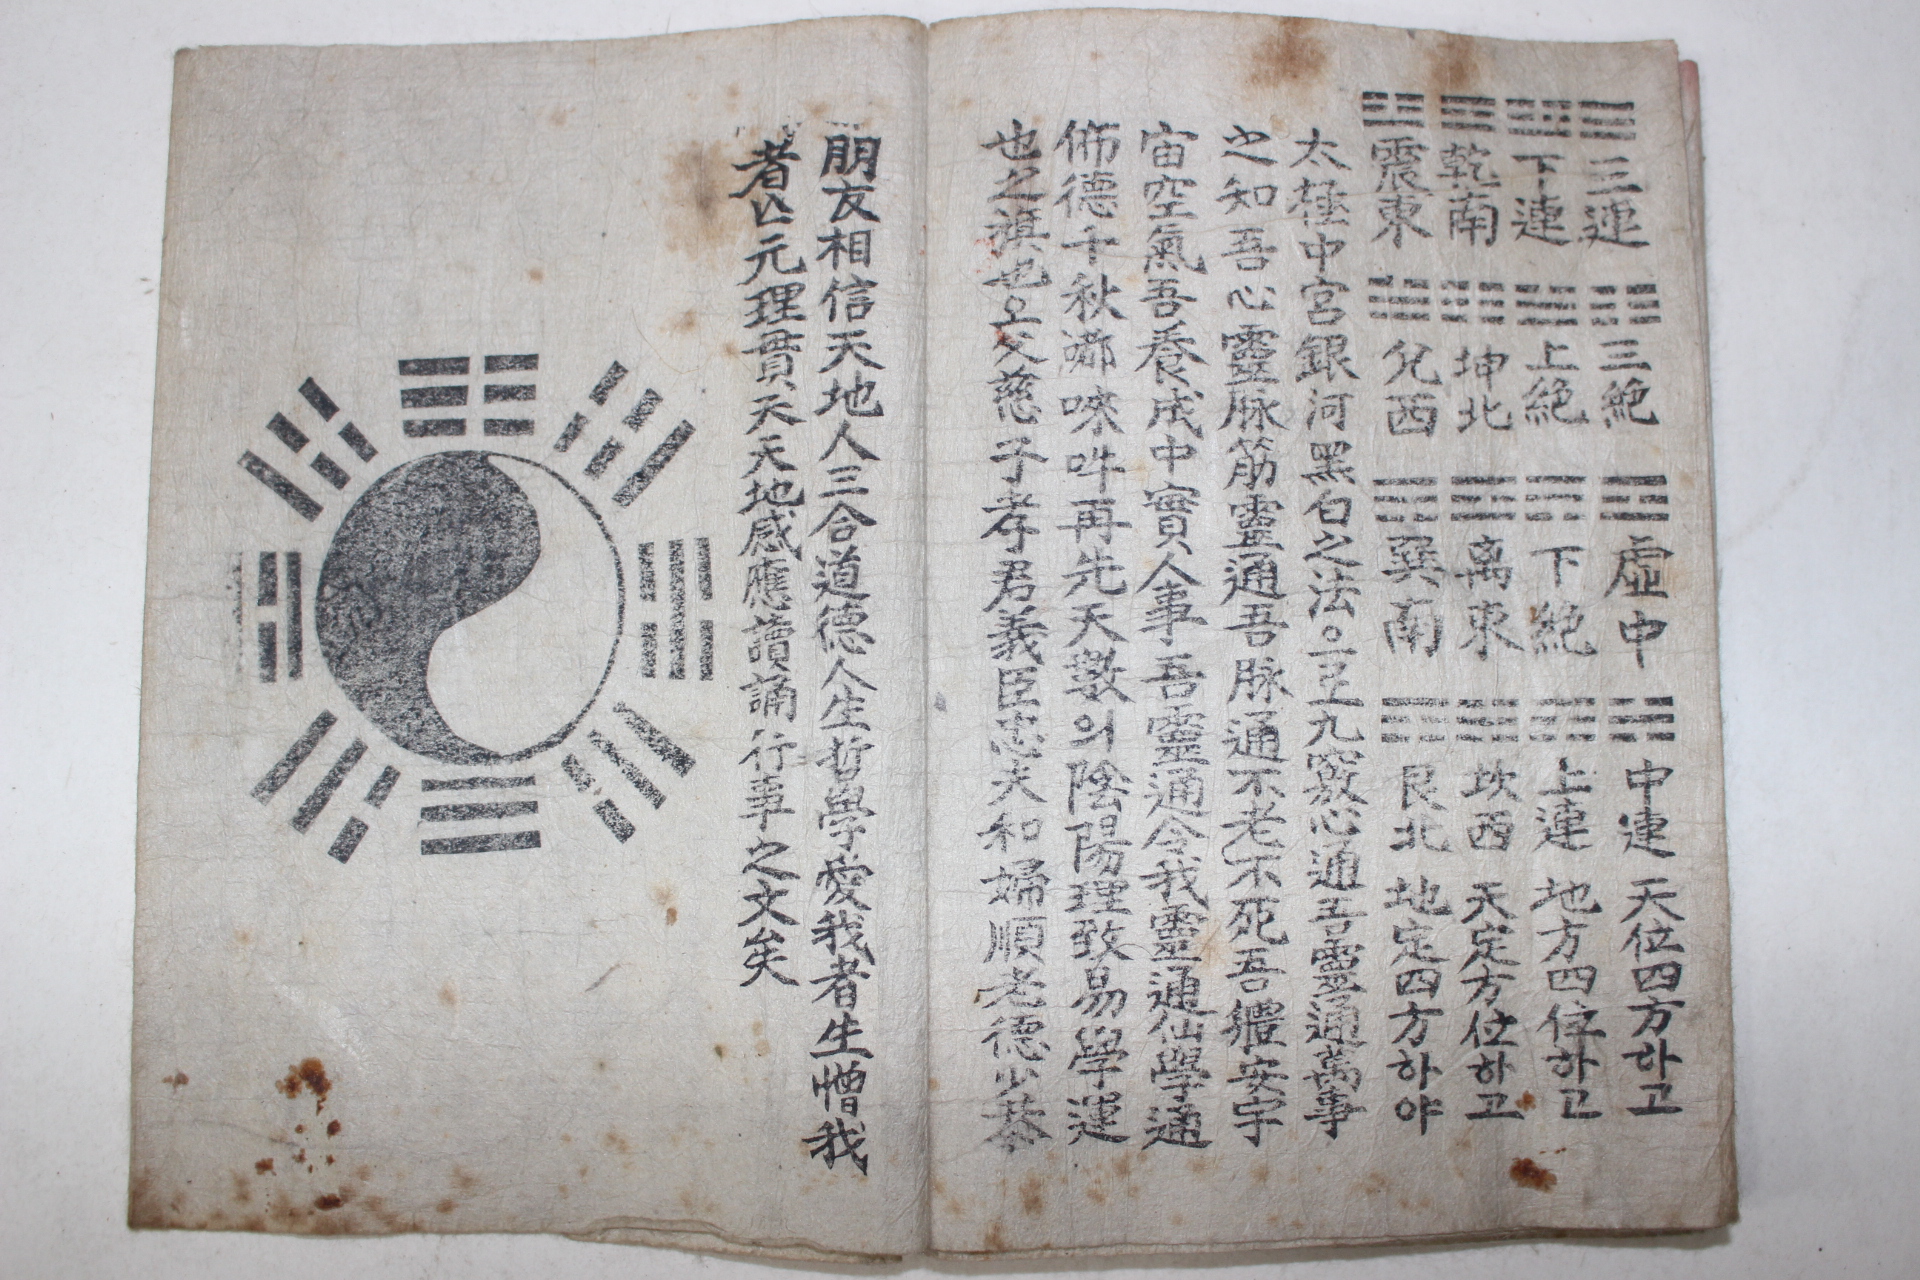 三連 三絶 虛中 中連 天位四方하고
下連 上絶 下絶 上連 地方四位하고
乾南 坤北 离東 坎西 天定方位하고
震東 兌西 巽南 艮北 地定四方하야
太極中宮銀河黑白之法으로九竅心通吾靈通萬事
之知吾心靈脉筋靈通吾脉通不老不死吾軆安宇
宙空氣吾養成中實人事吾靈通令我靈通仙學通
佈德千秋哪唻吽再先天數의陰陽理致易學運
也之旗也오父慈子孝君義臣忠夫和婦順老德少恭
朋友相信天地人三合道德人生哲學愛我者生憎我
者亾元理貫天天地感應讀誦行事之文矣